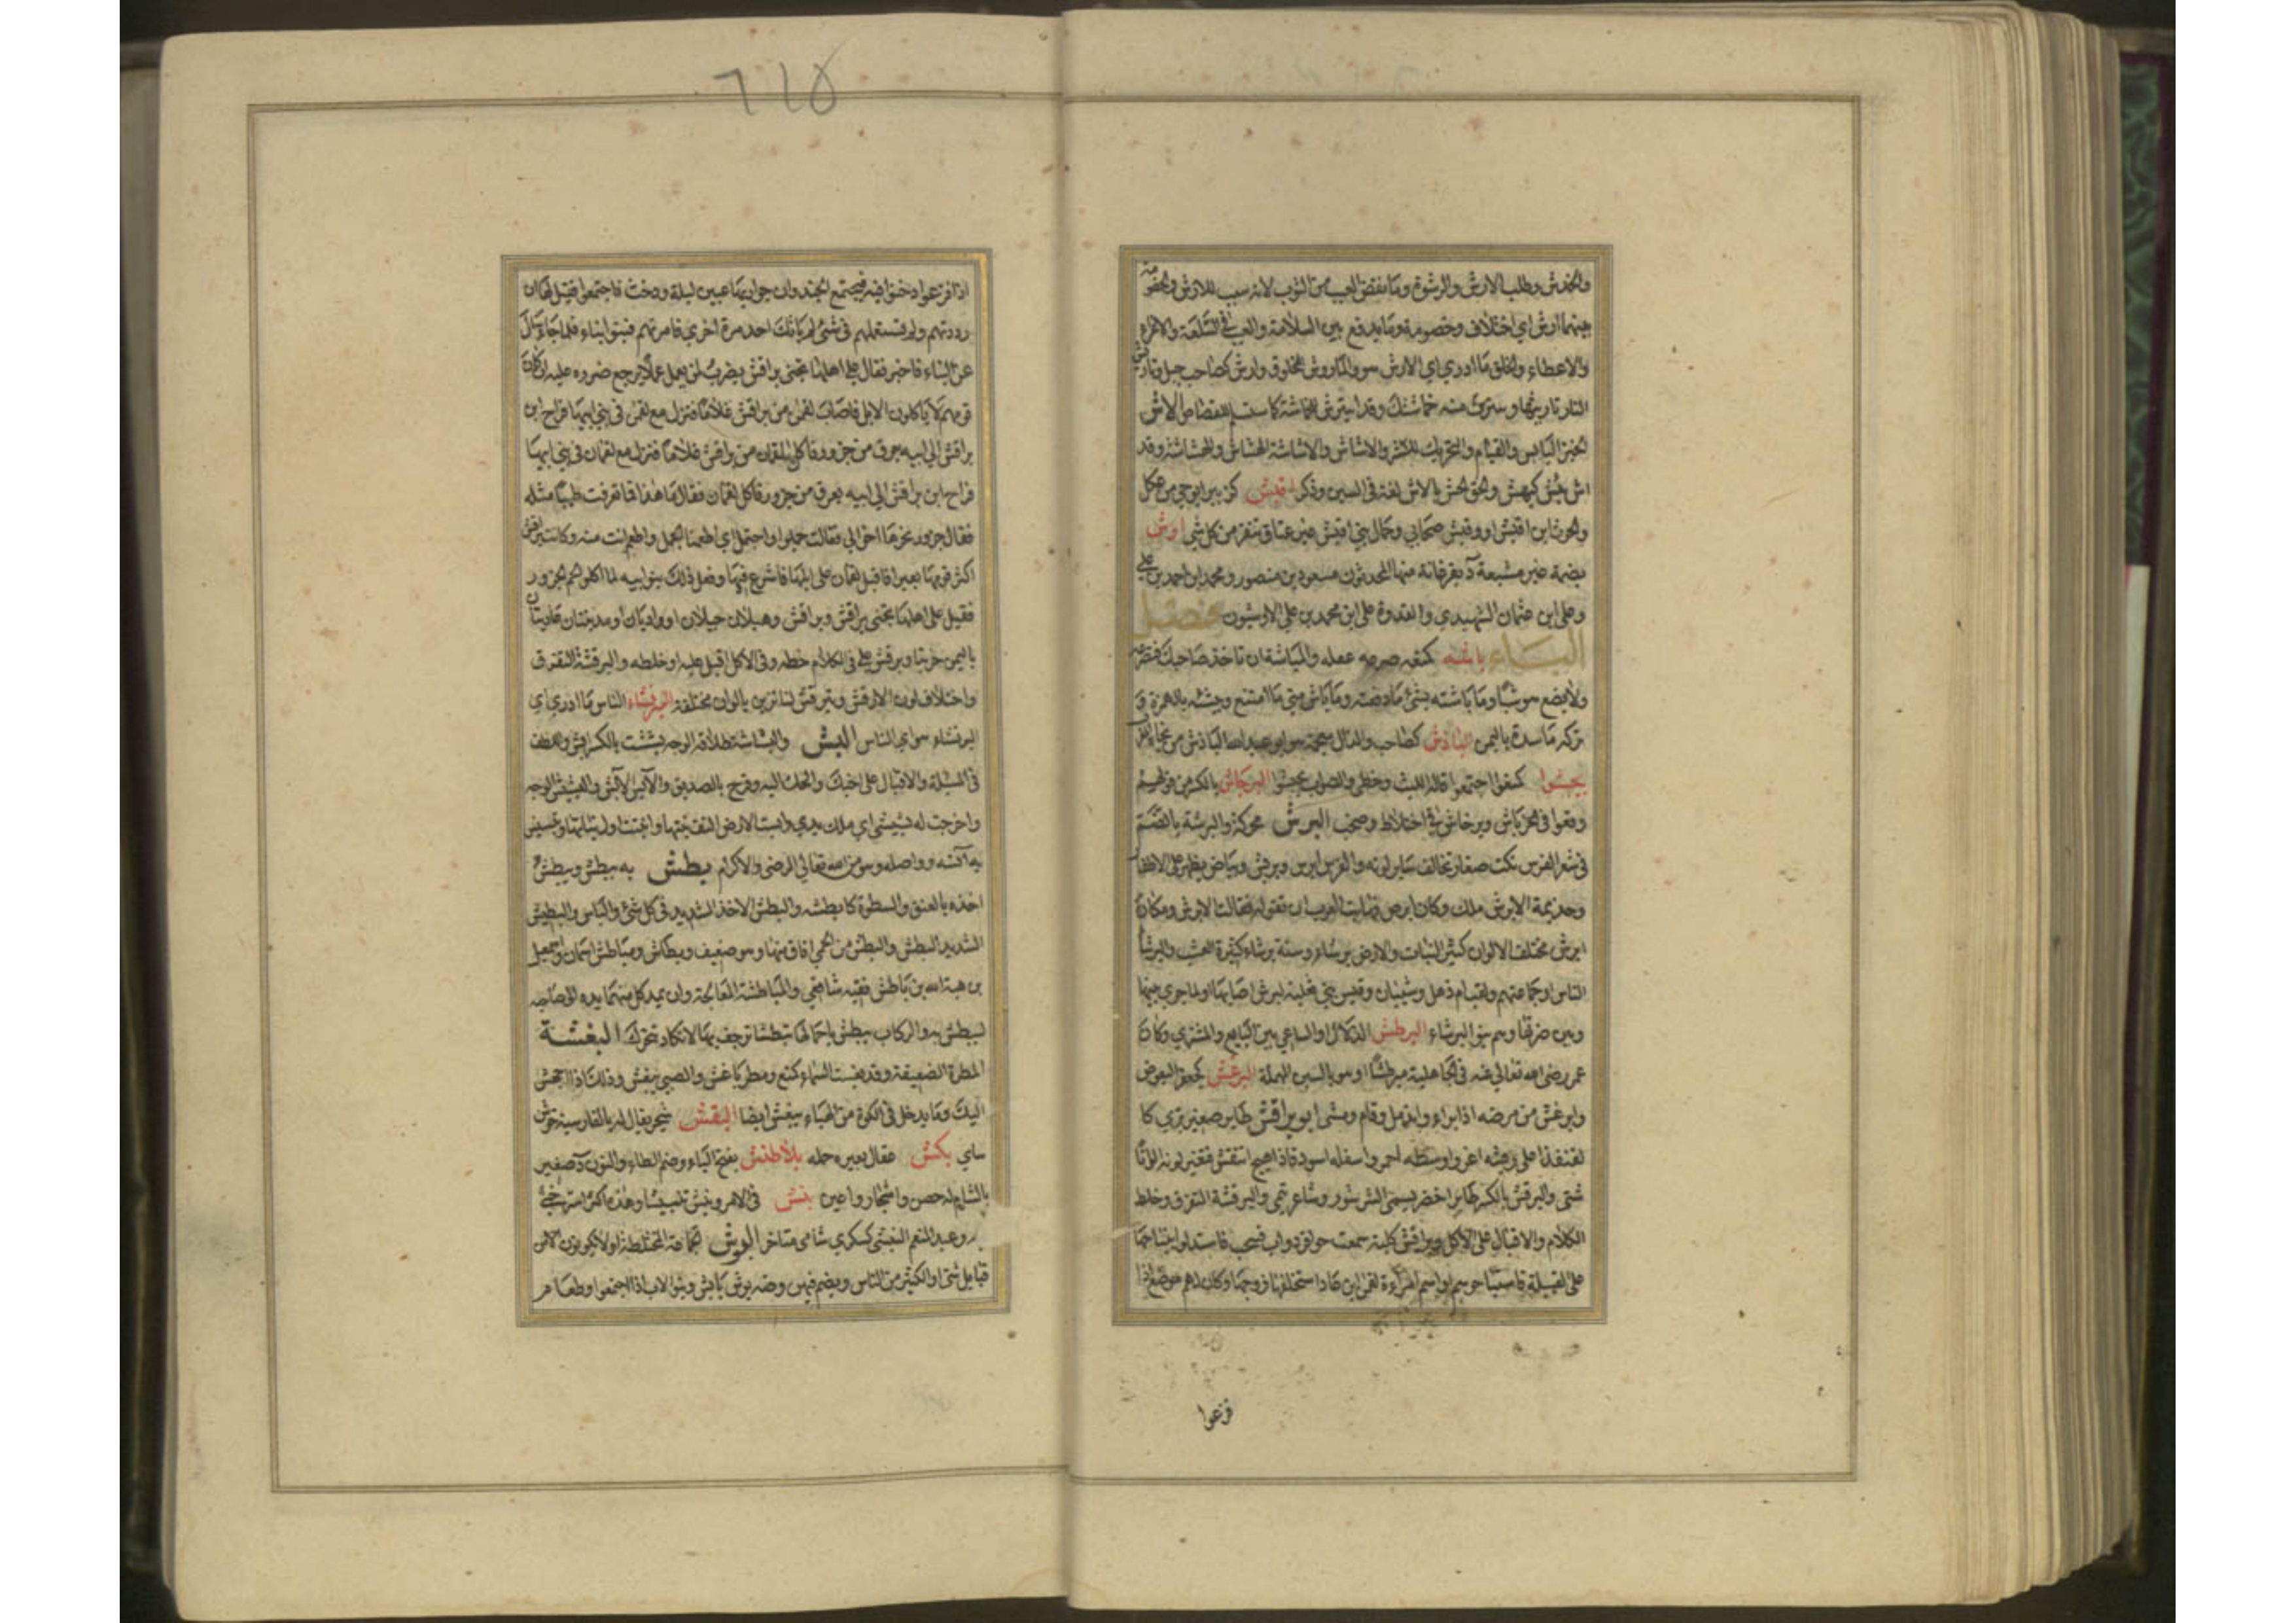 والخدش وطلب الارش والرشوة وما نقص العيب من الثوب لانه سبب للارش والخصومة
بينهما ارش اي اختلاف وخصومة وما يدفع بين السلامة والعيب في السلعة والاغراء
والاعطاء والخلق ما ادري اي الارش هو والماروش المخلوق وارش كصاحب جبل وتاريش
النار تاريثها و منه خماشتك وقد ايترش للخماشة كاستسلم للقصاص الاش
الخبز اليابس والقيام والتحريك للشر والاشاش والاشاشة الهشاش والهشاشة وقد
اش يئش كهش والحق الحش بالاش لغة في السين وذكر اقيش كزبير ابو حي من عكل
والحرث ابن اقيش او وقيش صحابي وجمال بني اقيش غير عتاق تنفر من كل شي اوش
بضمة غير مشبعة د بفرغانة منها المحدثون مسعود بن منصور ومحمد ابن احمد بن علي
وعلى ابن عثمان الشهيدي والقدوة على ابن محمد بن علي الاوشيون فصل
الباء باشه كمنعه صرعه غفلة والمباشة ان تاخذ صاحبك فتصرعه
ولا يضع هو شيأ وما باشته بشئ ما دفعته وما باش مني ما امتنع وبيشة بالهمزة و
تركه ماسدة باليمن الباذش كصاحب والذال معجمة هو ابو عبد الله الباذش من نحاة
بحبشوا كمنعوا اجتمعوا قاله الليث وخطئ والصواب تحبشوا البرخاش بالكسر من قولهم
وقعوا في خرباش وبرخاش في اختلاط وصخب البرش محركة والبرشة بالضم
في شعر الفرس نكت صغار تخالف سائر لونه والفرس ابرش وبرش وبياض يظهر على الاظفار
وجذيمة الابرش ملك وكان ابرص فهابت العرب ان تقوله فقالت الابرش ومكان
ابرش مختلف الالوان كثير النبات والارض برشاء وسنة برشاء كثيرة العشب والبرشا
الناس او جماعتهم ولقب ام ذهل وشيبان وقيس بني ثعلبة لبرش اصابها او لما جرى بينها
وبين ضرتها وهم بنو البرشاء البرطش الدلال او الساعي بين البايع والمشتري وكان
عمر رضي الله تعالى عنه في الجاهلية مبرطشا او هو بالسين المهملة البرغش كجعفر البعوض
وابرغش من مرضه اذا براء واندمل وقام ومشى ابو براقش طاير صغير بري كا
لقنفذ اعلى ريشه اغر واوسطه احمر واسفله اسود فاذا هيج انتفش فتغير لونه الوانا
شتى والبرقش بالكسر طاير اخضر يسمى الشرشور وشاعر تيمي والبرقشة التفرق وخلط
الكلام والاقبال على الاكل وبراقش كلبة سمعت حوافر دواب فنبحت فاستدلوا بنباحها
على القبيلة فاستباحوهم او اسم امراءة لقمن ابن عاد استخلفها زوجها وكان لهم موضع اذا
فزعوا
٦١٥
اذا فزعوا دخنوا فيه فيجتمع الجند وان جواريها عبثن ليلة ودخن فاجتمعوا فقيل لها ان
رددتهم ولم تستعمليهم في شئ لم ياتك احد مرة اخرى فامرتهم فبنوا بناء فلما جاء سال
عن البناء فاخبر فقال على اهلها تجنى براقش يضرب لمن يعمل عملا يرجع ضرره عليه او كان
قومهم لا ياكلون الابل فاصاب لقمن من براقش غلاما فنزل مع لقمن في بني ابيها فراح ابن
براقش الى ابيه بعرق من جزور فاكل لقمان من براقش غلاما فنزل مع لقمان في بني ابيها
فراح ابن براقش الى ابيه بعرق من جزور فاكل لقمان فقال ما هذا فما تعرقت طيبا مثله
فقال جزور نحرها اخوالي فقالت جملوا واجتمل اي اطعمنا الجمل واطعم انت منه وكانت براقش
اكثر قومها بعيرا فاقبل لقمان على ابلها فاشرع فيها وفعل ذلك بنو ابيه لما اكلوا لحم الجزور
فقيل على اهلها تجنى براقش وبراقش وهيلان جبلان او واديان او مدينتان عاديتان
باليمن خربتا وبرقش علي في الكلام خلطه وفي الاكل اقبل عليه او خلطه والبرقشة التفرق
واختلاف لون الارقش وتبرقش لنا تزين بالوان مختلفة البرنشاء الناس ما ادري اي
البرنشاء هو اي الناس البش والبشاشة طلاقة الوجه بششت بالكسر ابش واللطف
في المسئلة والاقبال على اخيك والضحك اليه وفرح بالصديق والابش والبشيش الوجه
واخرجت له بشيشي اي ملك يدي وابشت الارض التف نبتها وانبتت اول نباتها وتبشبش
به آنسه وواصله وهو من الله تعالى الرضى والاكرام بطش به يبطش ويبطش
اخذه بالعنف والسطوة كابطشه والبطش الاخذ الشديد في كل شئ والباس والبطيش
الشديد البطش والبطش من الحمى افاق منها وهو ضعيف وبطاش ومباطش اسمان واسمعيل
بن هبة الله بن باطش فقيه شافعي والمباطشة المعالجة وان يمد كل منهما يده الى صاحبه
ليبطش به والركاب يبطش باحمالها تبطشا ترجف بها لا تكاد تتحرك البغشة
المطرة الضعيفة وقد بغشت السماء كمنع ومطر باغش والصبي يبغش وذلك اذا اجهش
اليك وما يدخل في الكوة من الهباء يبغش ايضا البقش شجر يقال له بالفارسية خوش
ساي بكش عقال بعيره حله بلاطنش بفتح الباء وضم الطاء والنون د صغير
بالشام له حصن واشجار واعين بنش في الامر وبنش تبنيشا وهذه اكثر استرخى
وعبد المنعم البنشي كسكري شامي متاخر البوش الجماعة المختلطة او لا يكونون الا من
قبايل شتى او الكثير من الناس ويضم فيهن وضه بوش بايش وبنو الاب اذا اجتمعوا وطعام